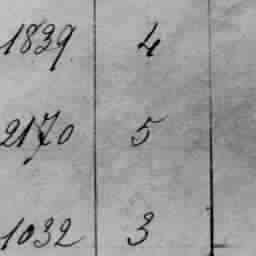 1839 4
2170 5
1032 3